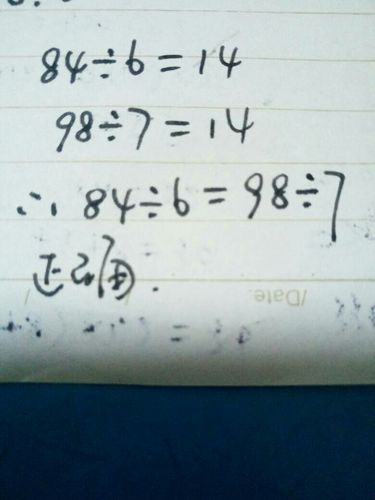 84÷6=14
98÷7=14
∴ 84÷6=98÷7
/Date.